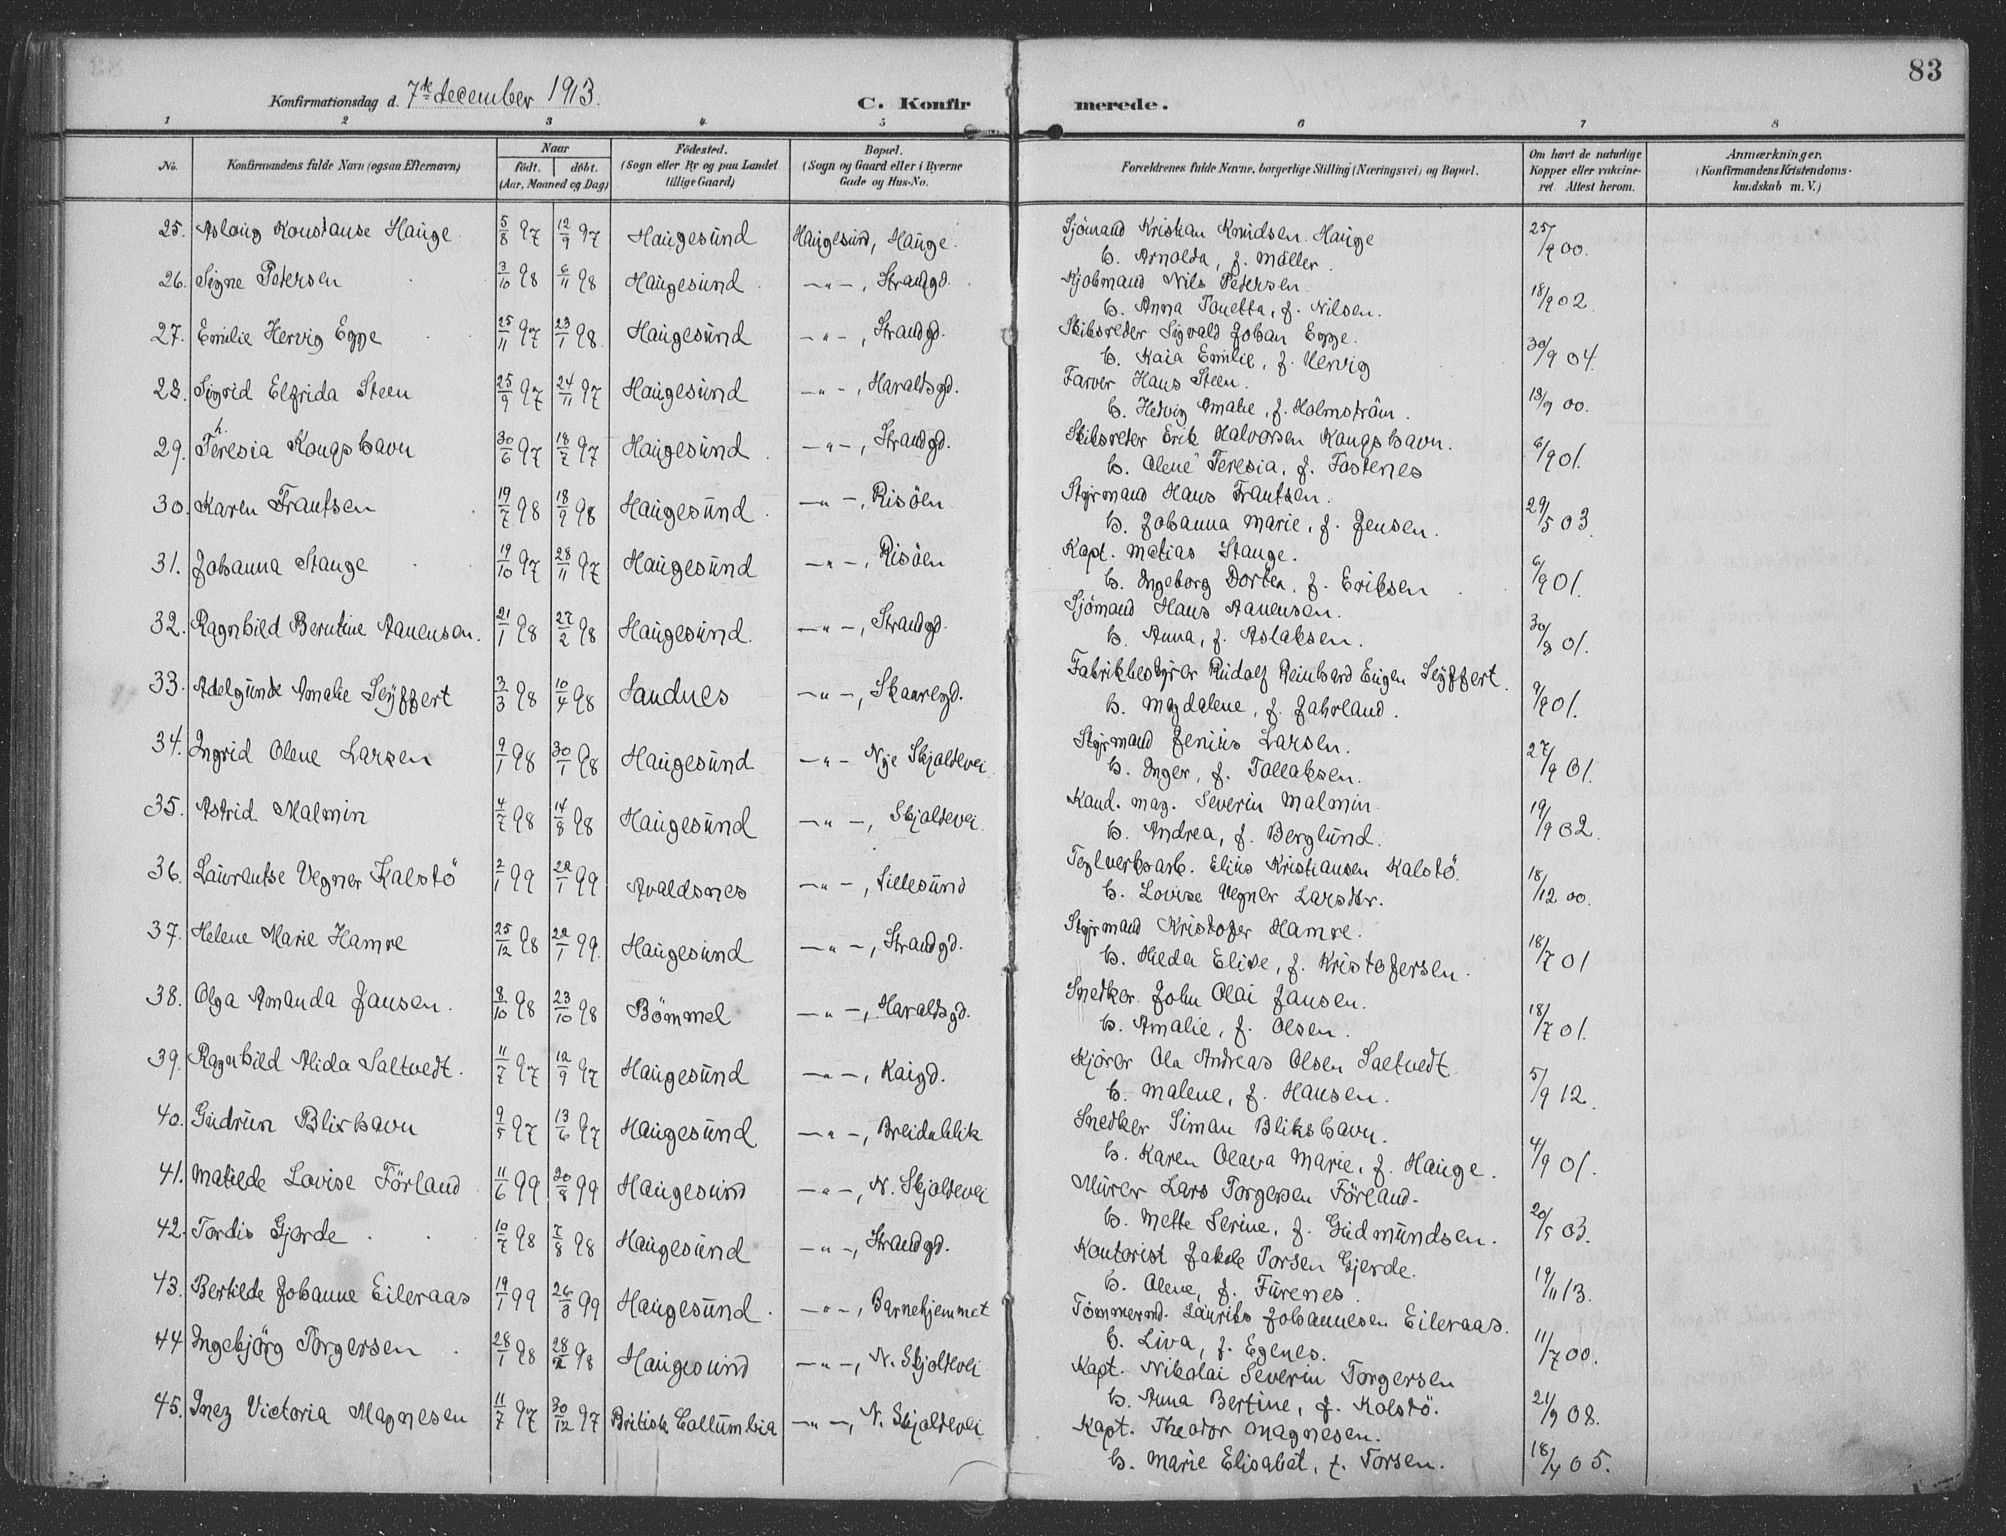 83
Konfirmationsdag d. 7de december 1913.
C. Konfirmerede.
1 2 3 4 5 6 7 8
No. Konfirmandens fulde Navn (ogsaa Efternavn) Naar født. døbt. (Aar, Maaned og Dag) Fødested. (Sogn eller By og paa Landet tillige Gaard) Bopæl. (Sogn og Gaard eller i Byerne Gade og Hus-No. Forældrenes fulde Navne, borgerlige Stilling (Næringsvei) og Bopæl. Om havt de naturlige Kopper eller vaccineret Attest herom. Anmærkninger. (Konfirmandens Kristendomskundskab m. V.)
25. Aslaug Konstanse Hauge 5/8 97 12/9 97 Haugesund Haugesund, Hauge. Sjömand Kristian Knudsen Hauge 25/9 00.
h. Arnolda, f. Möller.
26. Signe Petersen 3/10 98 6/11 98 Haugesund —"—, Strandgd. Kjöbmand Nils Petersen. 18/9 02
h. Anna Tonetta, f. Nilsen.
27. Emilie Hervig Egge 25/11 97 23/1 98 Haugesund —"—, Strandgd. Skibsreder Sigvald Johan Egge. 30/9 04.
h. Kaia Emilie, f. Hervig
28. Sigrid Elfrida Steen 25/9 97 24/11 97 Haugesund —"—, Haraldsgd. Farver Hans Steen. 18/9 00.
h. Hedvig Amalie, f. Holmström.
29. Theresia Kongshavn 30/6 97 18/7 97 Haugesund —"—, Strandgd. Skibsreder Erik Halvorsen Kongshavn. 6/9 01.
h. Olene Teresia, f. Fosfenes
30. Karen Frantsen 19/7 98 18/9 98 Haugesund —"—, Risöen Styrmand Hans Frantsen. 29/5 03.
h. Johanna Marie, f. Jensen.
31. Johanna Stange 19/10 97 28/11 97 Haugesund —"—, Risöen Kapt. Matias Stange. 6/9 01.
h. Ingeborg Dortea, f. Eriksen
32. Ragnhild Berntine Aanensen. 21/1 98 27/2 98 Haugesund. —"—, Strandgd. Sjömand Hans Aanensen. 30/8 01.
h. Anna, f. Aslaksen.
33. Adelgunde Amalie Seyffert 3/3 98 10/4 98 Sandnes —"—, Skaaregd. Fabrikbestyrer Rudolf Reinhard Eugen Seyffert. 9/9 01.
h. Magdalene, f. Jahrland.
34. Ingrid Olene Larsen 9/1 98 30/1 98 Haugesund —"— Nye Skjoldevei Styrmand Jenius Larsen. 27/9 01.
h. Inger, f. Tollaksen.
35. Astrid Malmin 4/7 98 14/8 98 Haugesund —"—, Skjoldevei Kand. mag. Severin Malmin. 19/9 02.
h. Andrea, f. Berglund.
36. Laurentse Vegner Kalstö 2/1 99 22/1 99 Avaldsnes —"—, Lillesund Teglverksarb. Elius Kristiansen Kalstö. 18/12 00.
h. Lovise Vegner Larsdtr.
37. Helene Marie Hamre 25/12 98 22/1 99. Haugesund —"—, Strandgd. Styrmand Kristofer Hamre. 18/7 01
h. Hilda Elise, f. Kristofersen.
38. Olga Amanda Jansen. 8/10 98 23/10 98 Bömmel —"—, Haraldsgd. Snedker John Olai Jansen. 18/7 01.
h. Amalie, f. Olsen.
39. Ragnhild Alida Saltvedt. 11/7 97 12/9 97 Haugesund —"—, Kaigd. Kjörer Ola Andreas Olsen Saltvedt 5/9 12.
h. Malene, f. Hansen.
40. Gudrun Blixhavn 9/5 97 13/6 97 Haugesund —"—, Breidablik Snedker Simon Blikshavn. 4/9 01.
h. Karen Olava Marie, f. Hauge.
41. Matilde Lovise Förland 11/6 99 20/8 99 Haugesund —"—, N. Skjoldevei Murer Lars Torgersen Förland. 20/5 03.
h. Mette Serine, f. Gudmundsen.
42. Tordis Gjerde 10/7 98 7/8 98 Haugesund —"—, Strandgd. Kontorist Jakob Torsen Gjerde. 19/11 13.
h. Olene, f. Furenes.
43. Bertilde Johanne Eileraas 19/1 99 26/3 99 Haugesund. —"—, Barnehjemmet Tömmermd. Laurits Johannesen Eileraas. 11/7 00.
h. Liva, f. Egenes.
44 Ingebjörg Torgersen 28/1 98 28/2 98 Haugesund —"—, N. Skjoldevei Kapt. Nikolai Severin Torgersen 21/9 08.
h. Anna Bertine, f. Kolstö.
45. Inez Victoria Magnesen 11/7 97 30/12 97 British Collumbia —"—, N. Skjoldevei Kapt. Theodor Magnesen. 18/4 05.
h. Marie Elisabet, f. Torsen.